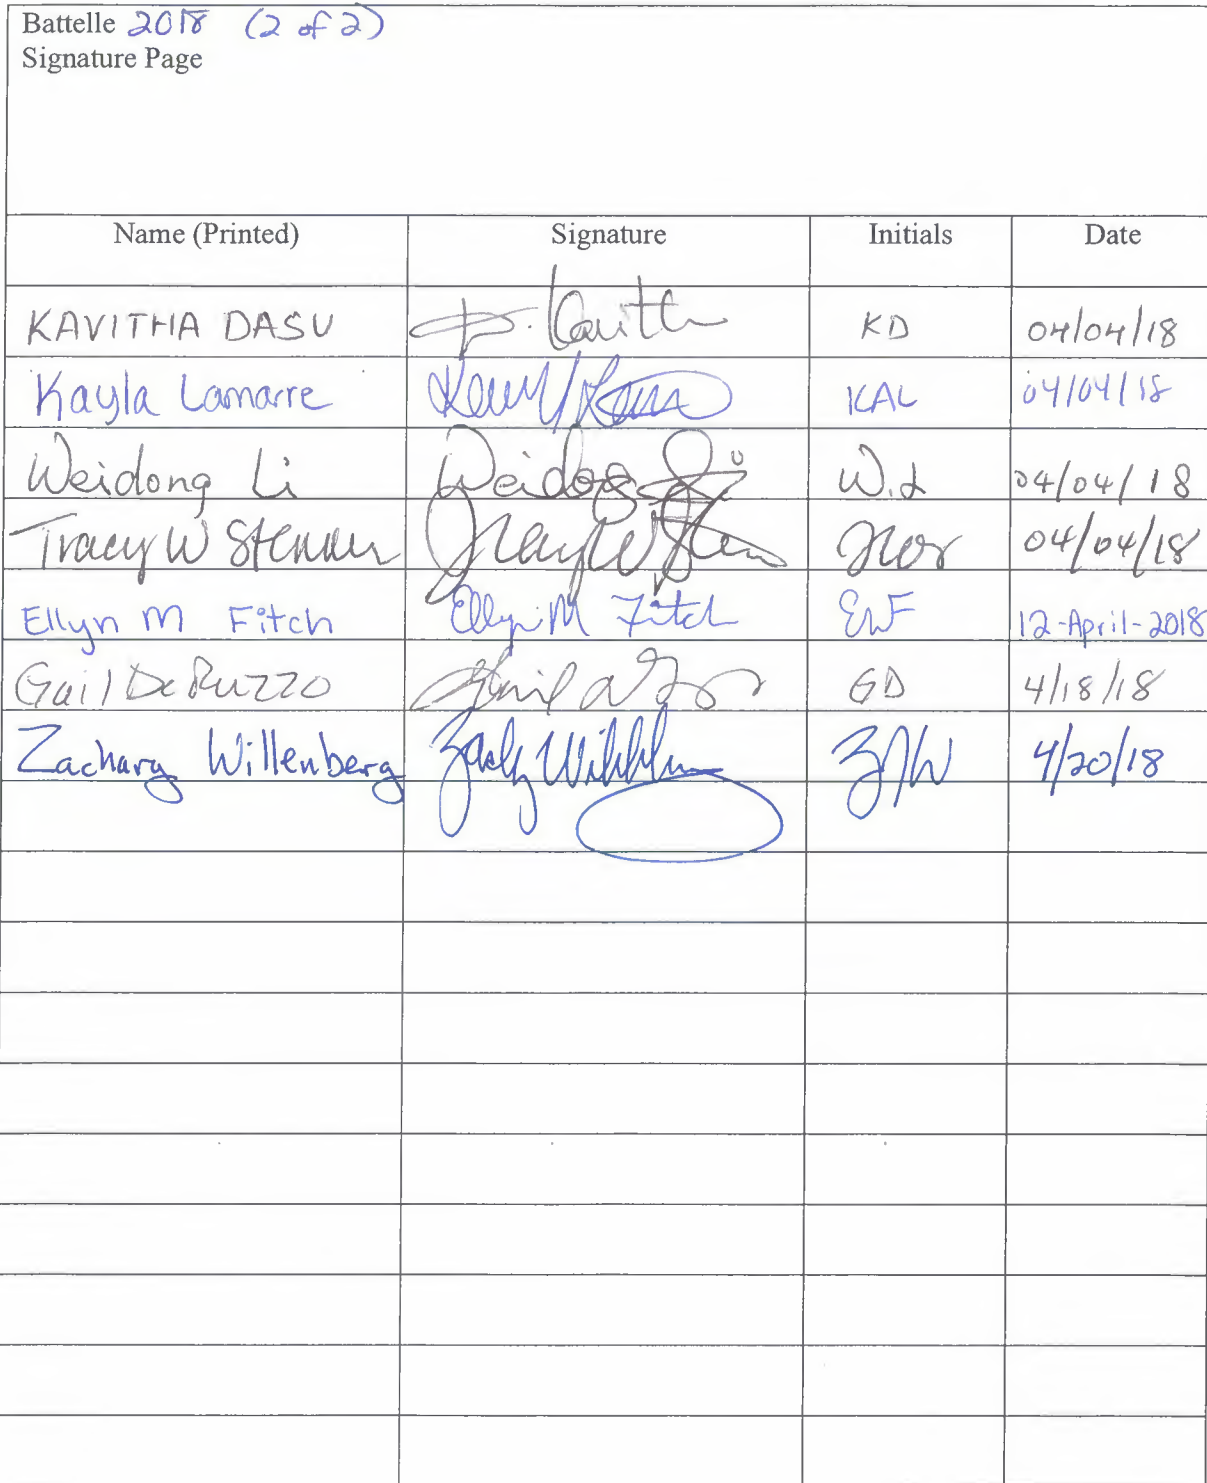 Battelle 2018 (2 of 2)
Signature Page
Name (Printed) Signature Initials Date
KAVITHA DASU D. Kavith KD 04/04/18
Kayla Lamarre KAL 04/04/18
Weidong Li Weidong Li W.L 04/04/18
Tracy W Stenner Tracy W 04/04/18
Ellyn M Fitch Ellyn M Fitch EMF 12-April-2018
Gail DeRuzzo Gail GD 4/18/18
Zachary Willenberg ZJW 4/20/18